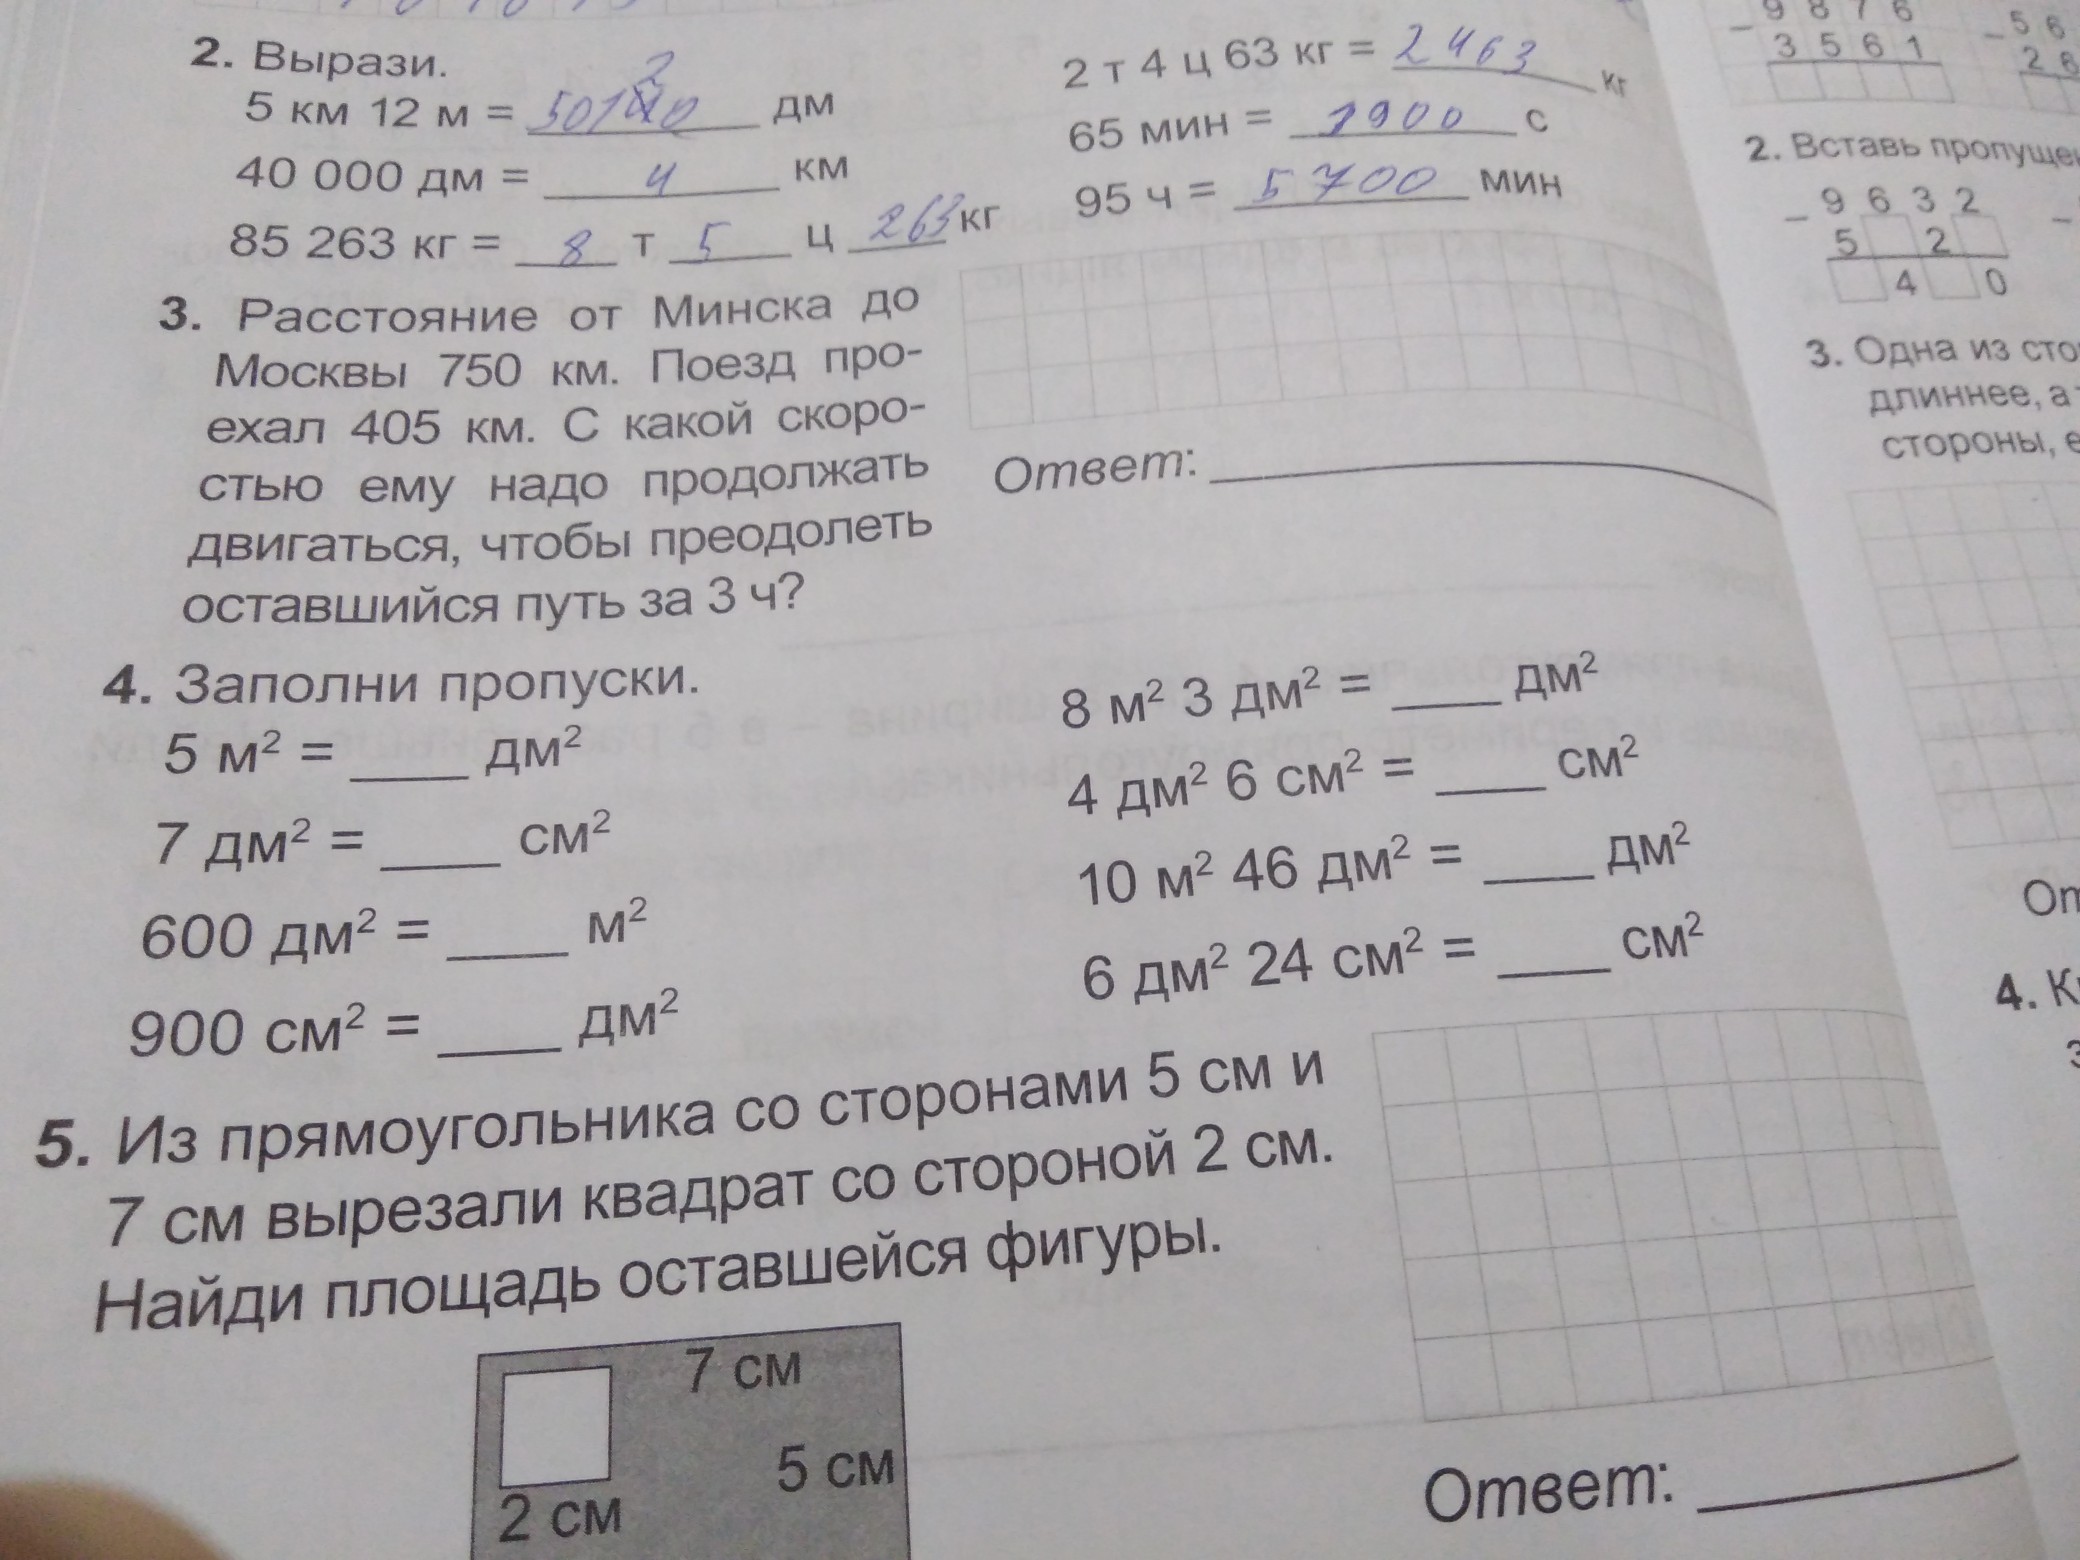 2. Вырази.
5 км 12 м = 50120 дм
40 000 дм = 4 км
85 263 кг = 8 т 5 ц 263 кг
2 т 4 ц 63 кг = 2463 кг
65 мин = 1900 с
95 ч = 5700 мин
3. Расстояние от Минска до
Москвы 750 км. Поезд про-
ехал 405 км. С какой скоро-
стью ему надо продолжать
двигаться, чтобы преодолеть
оставшийся путь за 3 ч?
Ответ:
4. Заполни пропуски.
5 м² = ____ дм²
7 дм² = ____ см²
600 дм² = ____ м²
900 см² = ____ дм²
8 м² 3 дм² = ____ дм²
4 дм² 6 см² = ____ см²
10 м² 46 дм² = ____ дм²
6 дм² 24 см² = ____ см²
5. Из прямоугольника со сторонами 5 см и
7 см вырезали квадрат со стороной 2 см.
Найди площадь оставшейся фигуры.
7 см
5 см
2 см
Ответ:
9 8 7 6
− 3 5 6 1
− 5 6
2 6
2. Вставь
− 9 6 3 2
5 2
4 0
3. Одна из
длиннее, а
стороны,
4.